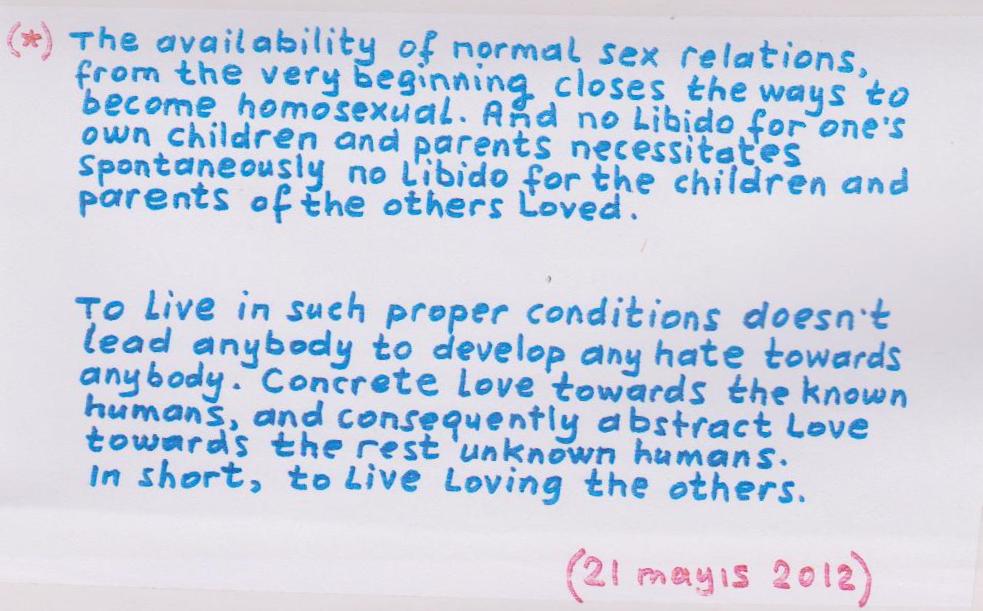 (*) The availability of normal sex relations,
from the very beginning closes the ways to
become homosexual. And no Libido for one's
own children and parents necessitates
spontaneously no Libido for the children and
parents of the others Loved.
To Live in such proper conditions doesn't
lead anybody to develop any hate towards
anybody. Concrete Love towards the known
humans, and consequently abstract Love
towards the rest unknown humans.
In short, to Live Loving the others.
(21 mayıs 2012)